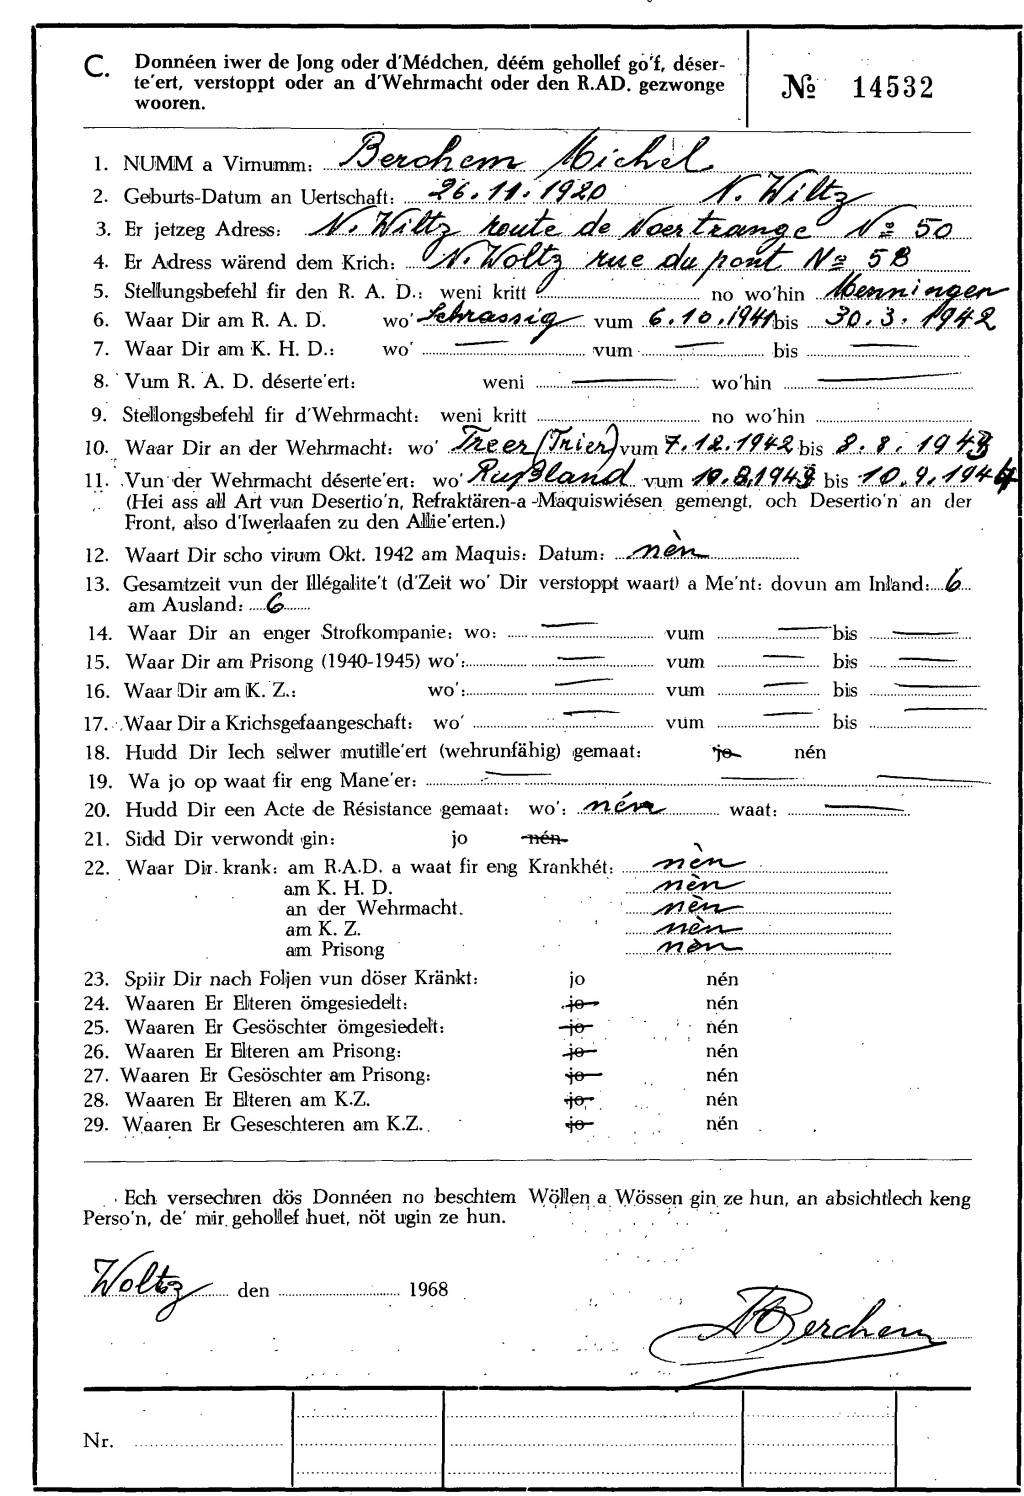 C. Donnéen iwer de Jong oder d'Médchen, déém gehollef go'f, déser-
te'ert, verstoppt oder an d'Wehrmacht oder den R.AD. gezwonge
wooren.
№ 14532
1. NUMM a Virnumm: Berchem Michel
2. Geburts-Datum an Uertschaft: 26.11.1920 N. Wiltz
3. Er jetzeg Adress: N. Wiltz route de Noertrange No 50
4. Er Adress wärend dem Krich: N. Woltz rue du pont No 58
5. Stellungsbefehl fir den R. A. D.: weni kritt no wo'hin Menningen
6. Waar Dir am R. A. D. wo' Schrassig vum 6.10.1941 bis 30.3.1942
7. Waar Dir am K. H. D.: wo' — vum — bis —
8. Vum R. A. D. déserte'ert: weni — wo'hin —
9. Stellongsbefehl fir d'Wehrmacht: weni kritt no wo'hin
10. Waar Dir an der Wehrmacht: wo' Treer (Trier) vum 7.12.1942 bis 8.8.1943
11. Vun der Wehrmacht déserte'ert: wo' Rußland vum 10.8.1943 bis 10.9.1944
(Hei ass all Art vun Desertio'n, Refraktären-a -Maquiswiésen gemengt, och Desertio'n an der
Front, also d'Iwerlaafen zu den Allie'erten.)
12. Waart Dir scho virum Okt. 1942 am Maquis: Datum: nèn
13. Gesamtzeit vun der Illégalite't (d'Zeit wo' Dir verstoppt waart) a Me'nt: dovun am Inland: 6
am Ausland: 6
14. Waar Dir an enger Strofkompanie: wo: — vum — bis —
15. Waar Dir am Prisong (1940-1945) wo': — vum — bis —
16. Waar Dir am K. Z.: wo': — vum — bis —
17. Waar Dir a Krichsgefaangeschaft: wo' — vum — bis —
18. Hudd Dir Iech selwer mutille'ert (wehrunfähig) gemaat: jo nén
19. Wa jo op waat fir eng Mane'er: —
20. Hudd Dir een Acte de Résistance gemaat: wo': nén waat: —
21. Sidd Dir verwondt gin: jo nén
22. Waar Dir krank: am R.A.D. a waat fir eng Krankhét: nèn
am K. H. D. nèn
an der Wehrmacht. nèn
am K. Z. nèn
am Prisong nèn
23. Spiir Dir nach Foljen vun döser Kränkt: jo nén
24. Waaren Er Elteren ömgesiedelt: jo nén
25. Waaren Er Gesöschter ömgesiedelt: jo nén
26. Waaren Er Elteren am Prisong: jo nén
27. Waaren Er Gesöschter am Prisong: jo nén
28. Waaren Er Elteren am K.Z. jo nén
29. Waaren Er Geseschteren am K.Z. jo nén
Ech versechren dös Donnéen no beschtem Wöllen a Wössen gin ze hun, an absichtlech keng
Perso'n, de' mir gehollef huet, nöt ugin ze hun.
Woltz den 1968
Berchem
Nr.